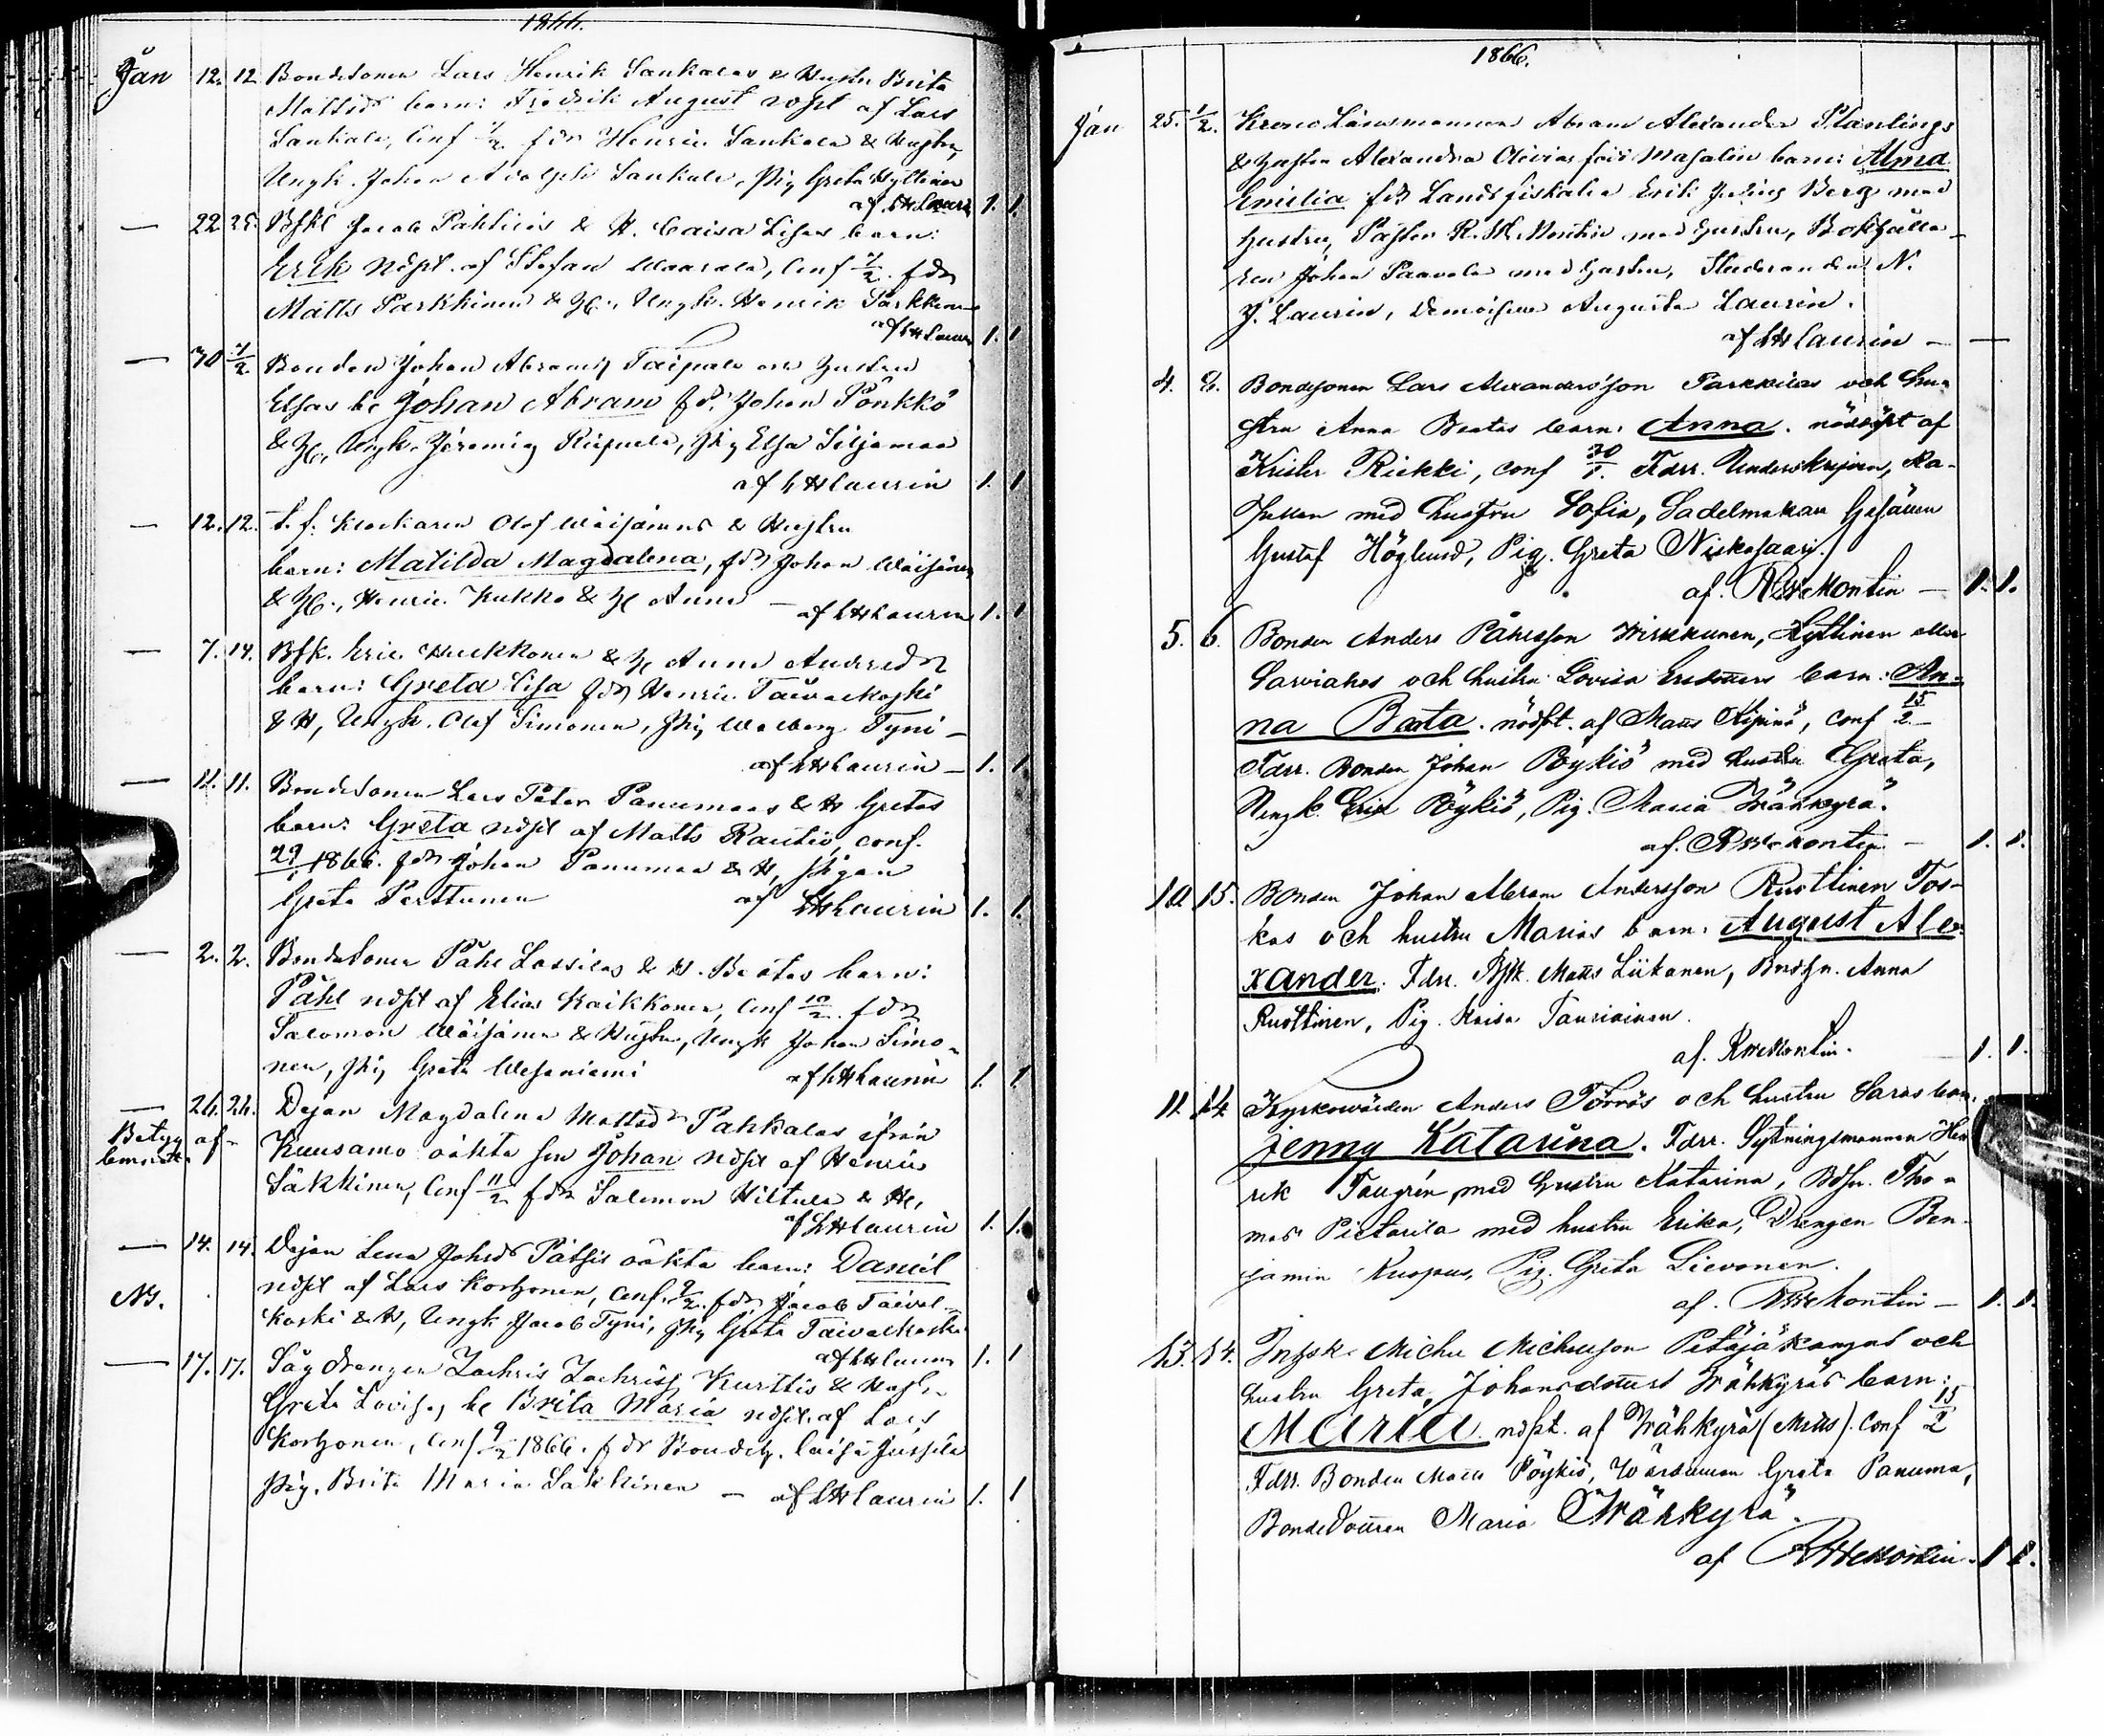 1866.
Jan 12. 12 Bondesonen Lars Henrik Sankalas & Hustru Brita
Mattsdr barn: Fredrik August nödpt af Lars
Sankala, Conf fdr Henric Sankala & Hustru,
Ungk. Johan Adolph Sankala, Pig Greta Kyllinen
af LHLaurin 1. 1
— 22 25. Bfkl Jacob Pahlicis & H. Caisa Lisas barn:
Erik Nödpt. af Stefan Waarala, Conf 7/2. fdr
Matts Parkkinen & H., Ungk. Henrik Parkkinen
af LHLaurin 1. 1
— 30 7/2 Bonden Johan Abramss Taipale och Hustru
Elsas bn Johan Abram fdr. Johan Pönkkö
& H., Ungk. Jeremias Riepula, Pig Elsa Siljamaa
af LHLaurin 1. 1
— 12. 12. t.f. Klockaren Olof Wäisänens & Hustru
barn: Matilda Magdalena, fdr Johan Wäisänen
& H., Henric Kukko & H Anna — af LHLaurin 1. 1
— 7. 14. Bfk. Eric Heikkonen & H Anna Andersdr
barn: Greta Lisa fdr Henric Taivalkoski
& H, Ungk. Olof Simonen, Pig Walborg Tyni —
af LHLaurin — 1. 1
— 11. 11. Bondesonen Lars Peter Panumaas & H Gretas
barn: Greta nödpt af Matts Rautio, conf.
29/1 1866. fdr Johan Panumaa & H, Pigan
Greta Perttunen af LHLaurin 1. 1.
— 2. 2. Bondesonen Påhl Lassilas & H. Beatas barn:
Påhl nödpt af Elias Kaikkonen, Conf 10/2. fdr
Salomon Wäisänen & Hustru, Ungk Johan Simo-
nen, Pig Greta Wesaniemi af LHLaurin 1. 1
— 26. 26. Dejan Magdalena Mattsdr Pahkalas ifrån
Betyg af-
Kuusamo oäkta son Johan nödpt af Henric
Säkkinen, Conf 11/2 fdr Salomon Hiltula & H.,
af LHLaurin 1. 1.
— 14. 14. Dejan Lena Johsdr Pätsis oäkta barn: Daniel
nödpt af Lars Korhonen, Conf. 9/2. fdr Jacob Taival-
koski & H, Ungk Jacob Tyni, Pig Greta Taivalkoski
af LHLaurin 1. 1
— 17. 17. Sågdrengen Zachris Zachriss Kurttis & Hust.
Greta Lovisas bn Brita Maria nödpt. af Lars
Korhonen, Conf 9/2 1866. fdr Bondeh. Caisa Jussila
Pig. Brita Maria Säkkinen — af LHLaurin 1. 1
1866.
Jan 25. 1/2. Krono Länsmannen Abram Alexander Planlings
& Hustru Alexandra Olivias född Masalin barn: Alma
Emilia fdr Landsfiskalen Erik Julius Berg med
Hustru, Pastor R. W. Montin med Hustru, Bokhålla-
ren Johan Paavola med Hustru, Studeranden N.
J. Laurin, Demoiselle Augusta Laurin.
af LHLaurin — —
4. 6. Bondesonen Lars Alexandersson Parkkilas och Hu-
stru Anna Beatas barn: Anna. nöddöpt af
Krister Riekki, conf 30/1. Fdrr. Underskrifven, Ka-
med hustru Sofia, Sadelmakare Gesällen
Gustaf Höglund, Pig. Greta Niskasaari.
af. RWMontin — 1. 1.
5. 6. Bonden Anders Påhlsson Wirkkunen, Kyttinen eller
Sarviahos och hustru Lovisa barn: An-
na Beata. nödpt. af Matts Kipinä, conf 15/2 —
Fdrr. Bonden Johan Pöykiö med hustru Greta,
Ungk. Erik Pöykiö, Pig. Maria Wähkyrä.
af. RWMontin — 1. 1.
10. 15. Bonden Johan Abram Andersson Ruottinen Tos-
kas och hustru Marias barn: August Ale-
xander. Fdrr. Bfk. Matts Liikanen, Bndhn. Anna
Ruottinen, Pig. Kaisa Tauriainen.
af. RWMontin. 1. 1.
11. 14. Kyrkovärden Anders Törrös och hustru Saras barn:
Jenny Katarina. Fdrr. Sytningsmannen Hen-
rik Taugrén med hustru Katarina, Bdsn. Tho-
mas Pietarila med hustru Erika, Drengen Ben-
jamin Kuopus, Pig. Greta Lievonen.
af. RWMontin — 1. 1.
13. 14. Inhysk. Michel Michelsson Petäjäkangas och
hustru Greta Johansdotters Wähkyräs barn:
Maria. nödpt. af Wähkyrä (Matts). Conf 15/2
Fdrr. Bonden Matts Pöykiö, Wärdinnan Greta Panuma,
Bondedottren Maria Wähkyrä.
af RWMontin. 1 1.